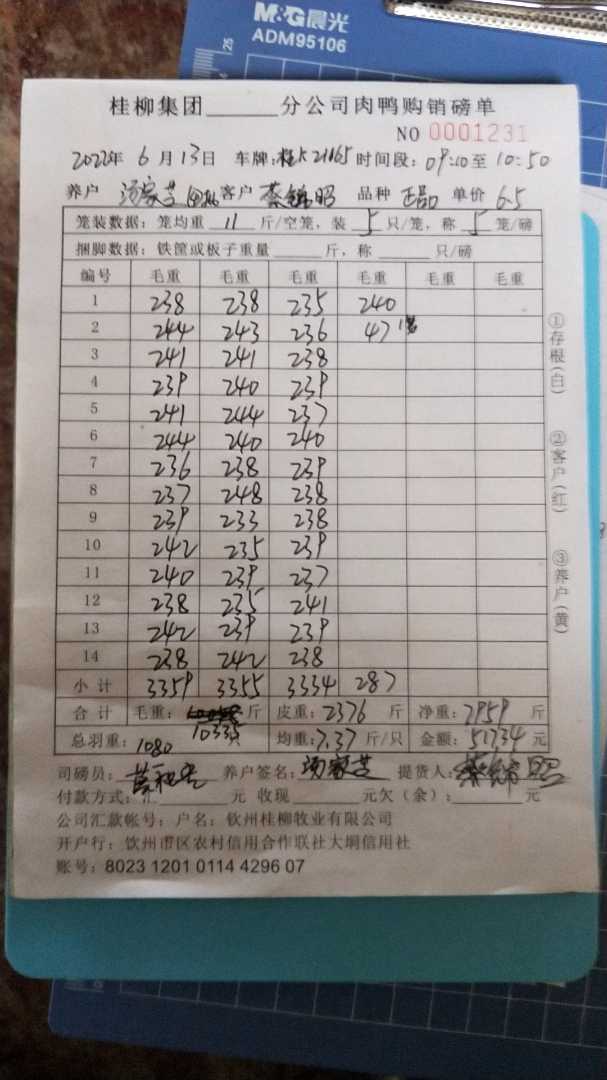 M&G晨光
ADM95106
25
桂柳集团______分公司肉鸭购销磅单
NO 0001231
2022年 6月13日 车牌:桂K21165 时间段:09:10至10:50
养户 汤家芸 客户 蔡锦昭 品种 正品 单价 6.5
笼装数据:笼均重 11 斤/空笼,装 5 只/笼,称 5 笼/磅
捆脚数据:铁筐或板子重量______斤,称______只/磅
编号 毛重 毛重 毛重 毛重 毛重 毛重
1 238 238 235 240
2 244 243 236 47 1笼
3 241 241 238
4 239 240 239
5 241 244 237
6 244 240 240
7 236 238 239
8 237 248 238
9 239 233 238
10 242 235 239
11 240 239 237
12 238 235 241
13 242 239 239
14 238 242 238
小计 3359 3355 3334 287
合计 毛重: 10335 斤 皮重:2376 斤 净重:7959 斤
总羽重:1080 均重:7.37 斤/只 金额:51734 元
司磅员: 养户签名:汤家芸 提货人:蔡锦昭
付款方式:汇______元 收现______元欠(余):______元
公司汇款帐号:户名:钦州桂柳牧业有限公司
开户行:钦州市区农村信用合作联社大垌信用社
账号:8023 1201 0114 4296 07
①存根(白)
②客户(红)
③养户(黄)